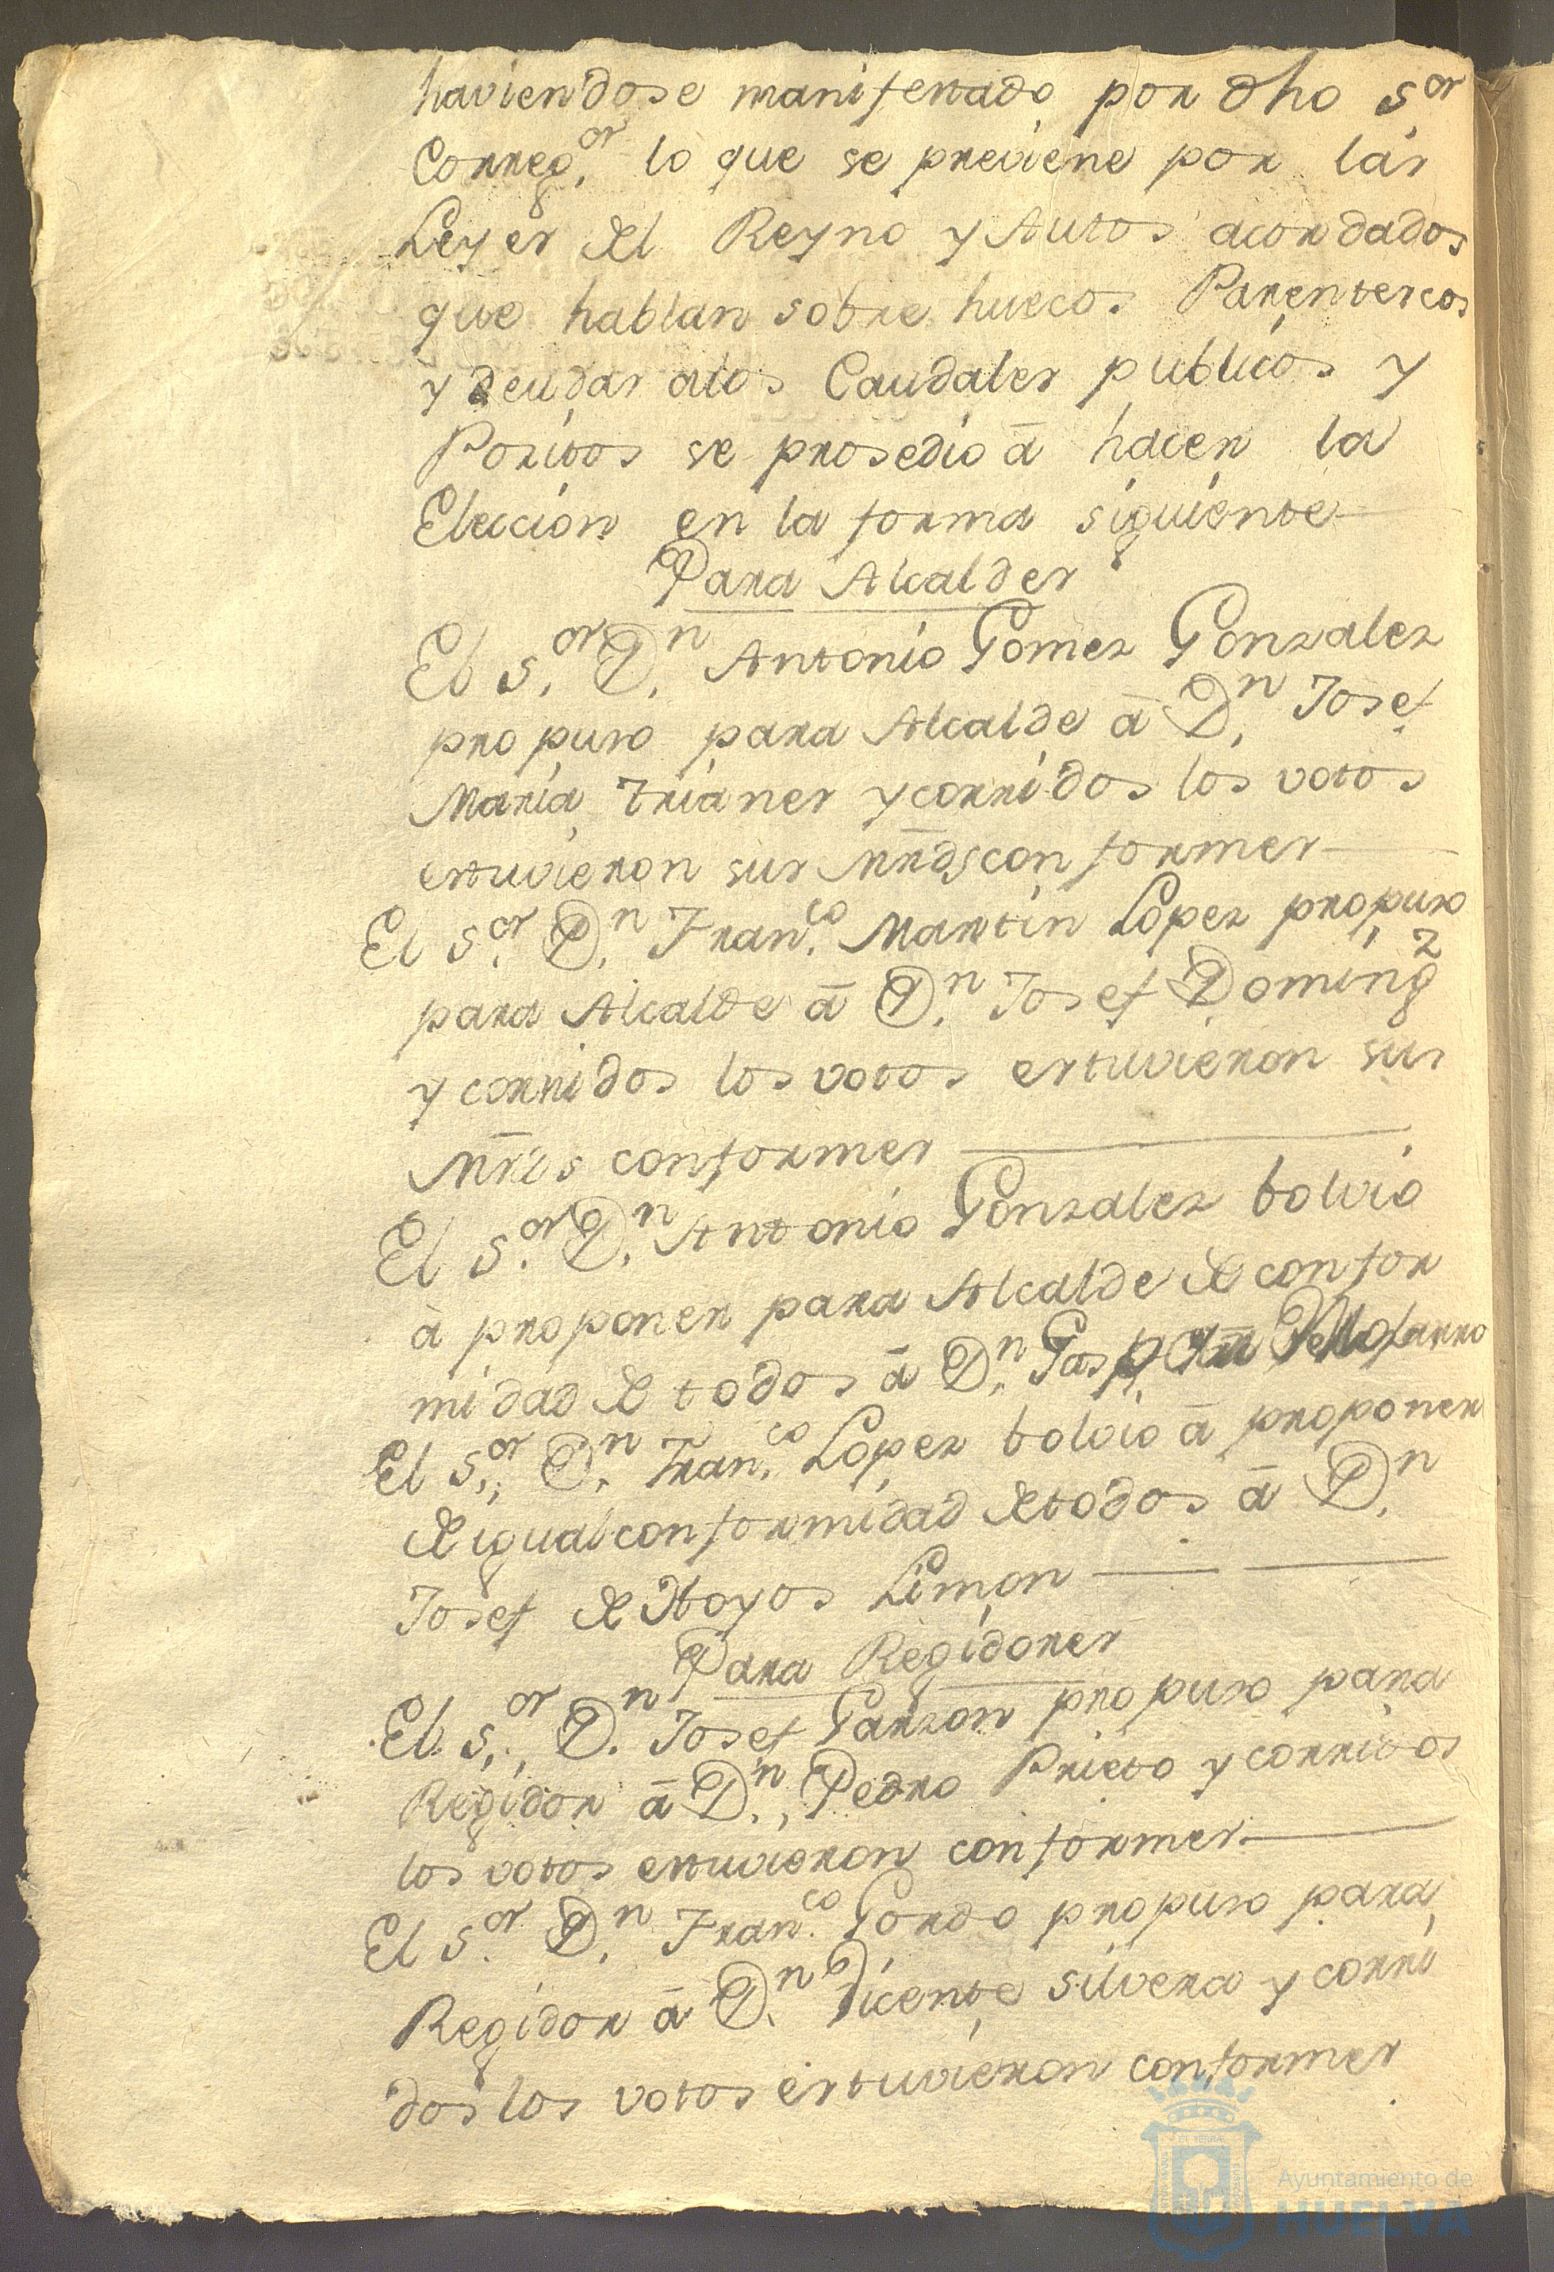 haviendose manifestado por dho s.or
Correg.or lo que se previene por las
Leyes del Reyno y Autos acordados
que hablan sobre huecos Parentescos
y deudas alos Caudales publicos y
Positos se prosedio â hacer la
Eleccion en la forma siguiente
Para Alcaldes
El s.or D.n Antonio Gomez Gonzalez
propuso para Alcalde â D.n Josef
Maria Trianes y corridos los votos
estuvieron sus Mrds conformes
El s.or D.n Fran.co Martin Lopez propuso
para Alcalde â D.n Josef Doming.z
y corridos los votos estuvieron sus
Mrds conformes
El s.or D.n Antonio Gonzalez bolvio
â proponer para Alcalde de confor
midad de todos â D.n Gaspar
El s.or D.n Fran.co Lopez bolvio â proponer
de igual conformidad de todos â D.n
Josef de Hoyos Limon
Para Regidores
El s.or D.n Josef Garzon propuso para
Regidor â D.n Pedro Prieto y corridos
los votos estuvieron conformes
El s.or D.n Fran.co Gordo propuso para
Regidor â D.n Vicente Silvera y corri
dos los votos estuvieron conformes
Ayuntamiento de
HUELVA